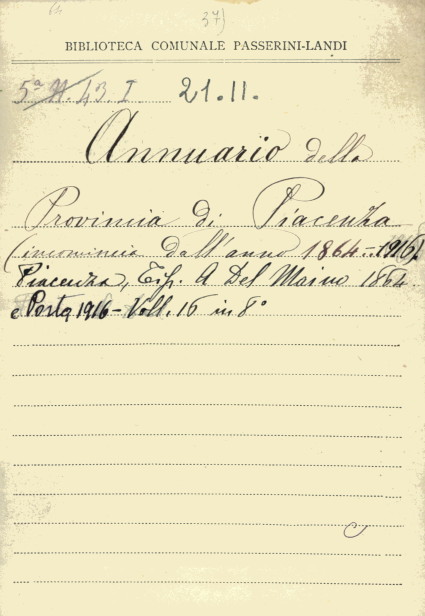 37)
BIBLIOTECA COMUNALE PASSERINI-LANDI
5ª H. 43. I 21.11.
Annuario della
Provincia di Piacenza
(incomincia dall'anno 1864-1916)
Piacenza, Tip. A Del Maino 1864
e Porta 1916 - Voll. 16 in 8°